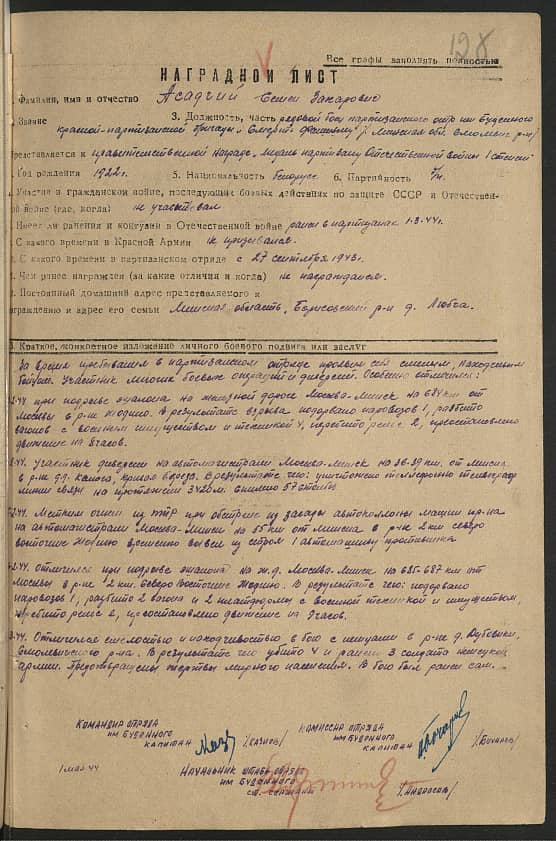 128
Все графы заполнять полностью
НАГРАДНОЙ ЛИСТ
Фамилия, имя и отчество Асадчий Семен Захарович
Звание 3. Должность, часть рядовой боец партизанского отр им Буденного
партизанской бригады "Смерть фашизму" Минская обл. Смолевич. р-н/
Представляется к правительственной награде, медаль партизану Отечественной войны I степени
Год рождения 1922г. 5. Национальность белорус 6. Партийность
Участие в гражданской войне, последующих боевых действиях по защите СССР и Отечествен-
ной войне (где, когда) не участвовал
Имеет ли ранения и контузии в Отечественной войне ранен в партизанах 1-3-44г.
С какого времени в Красной Армии не призывался.
С какого времени в партизанском отряде с 27 сентября 1943г.
Чем ранее награжден (за какие отличия и когда) не награждался.
Постоянный домашний адрес представляемого к
награждению и адрес его семьи Минская область, Борисовский р-н д. Любча.
Краткое, конкретное изложение личного боевого подвига или заслуг
За время пребывания в партизанском отряде проявил себя смелым, находчивым
бойцом. Участник многих боевых операций и диверсий. Особенно отличился:
44 при подрыве эшалона на железной дороге Москва-Минск на км от
Москвы в р-не Жодино. В результате взрыва подорвано паровозов 1, разбито
вагонов с военным имуществом и техникой 4, перебито рельс 2, приостановлено
движение на 8 часов.
44. Участник диверсии на автомагистрали Москва-Минск на 36-39 км. от Минска
в р-не д.д. Калюга, Кривая береза. В результате чего: уничтожено телефонно телеграф
линии связи на протяжении 3420м. спилено 57 столбов
44. Метким огнем из ПТР при обстреле из засады автоколонны машин пр-ка
на автомагистрали Москва-Минск на 55 км от Минска в р-не 2 км северо
восточнее Жодино временно вывел из строя 1 автомашину противника.
44. Отличился при подрыве эшалона на ж.д. Москва-Минск на 685-687 км от
Москвы в р-не 2 км. Северо Восточнее Жодино. В результате чего: подорвано
паровозов 1, разбито 2 вагона и 2 платформы с военной техникой и имуществом,
перебито рельс 2, приостановлено движение на 9 часов.
44. Отличился смелостью и находчивостью в бою с немцами в р-не д. Дубовики,
Смолевичского р-на. В результате чего убито 4 и ранено 3 солдата немецкой
армии. Предотвращены жертвы мирного населения. В бою был ранен сам.
Командир отряда
им Буденного
капитан
Комиссар отряда
им Буденного
капитан
1 мая 44
Начальник штаба отряда
им Буденного
ст. сержант